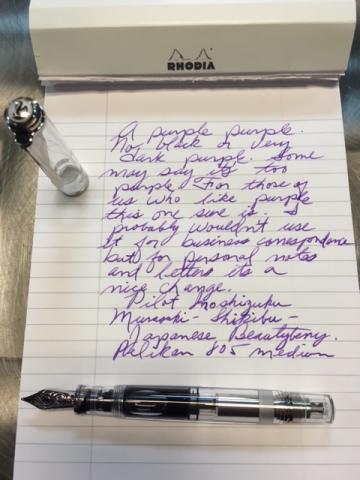 RHODIA
A purple purple.
Not black or very
dark purple. Some
may say its too
purple. For those of
us who like purple
this one sure is. I
probably wouldn't use
it for business correspondence
but for personal notes
and letters its a
nice change.
Pilot Iroshizuku
Murasaki-Shikibu -
Japanese Beautyberry.
Pelikan 805 medium